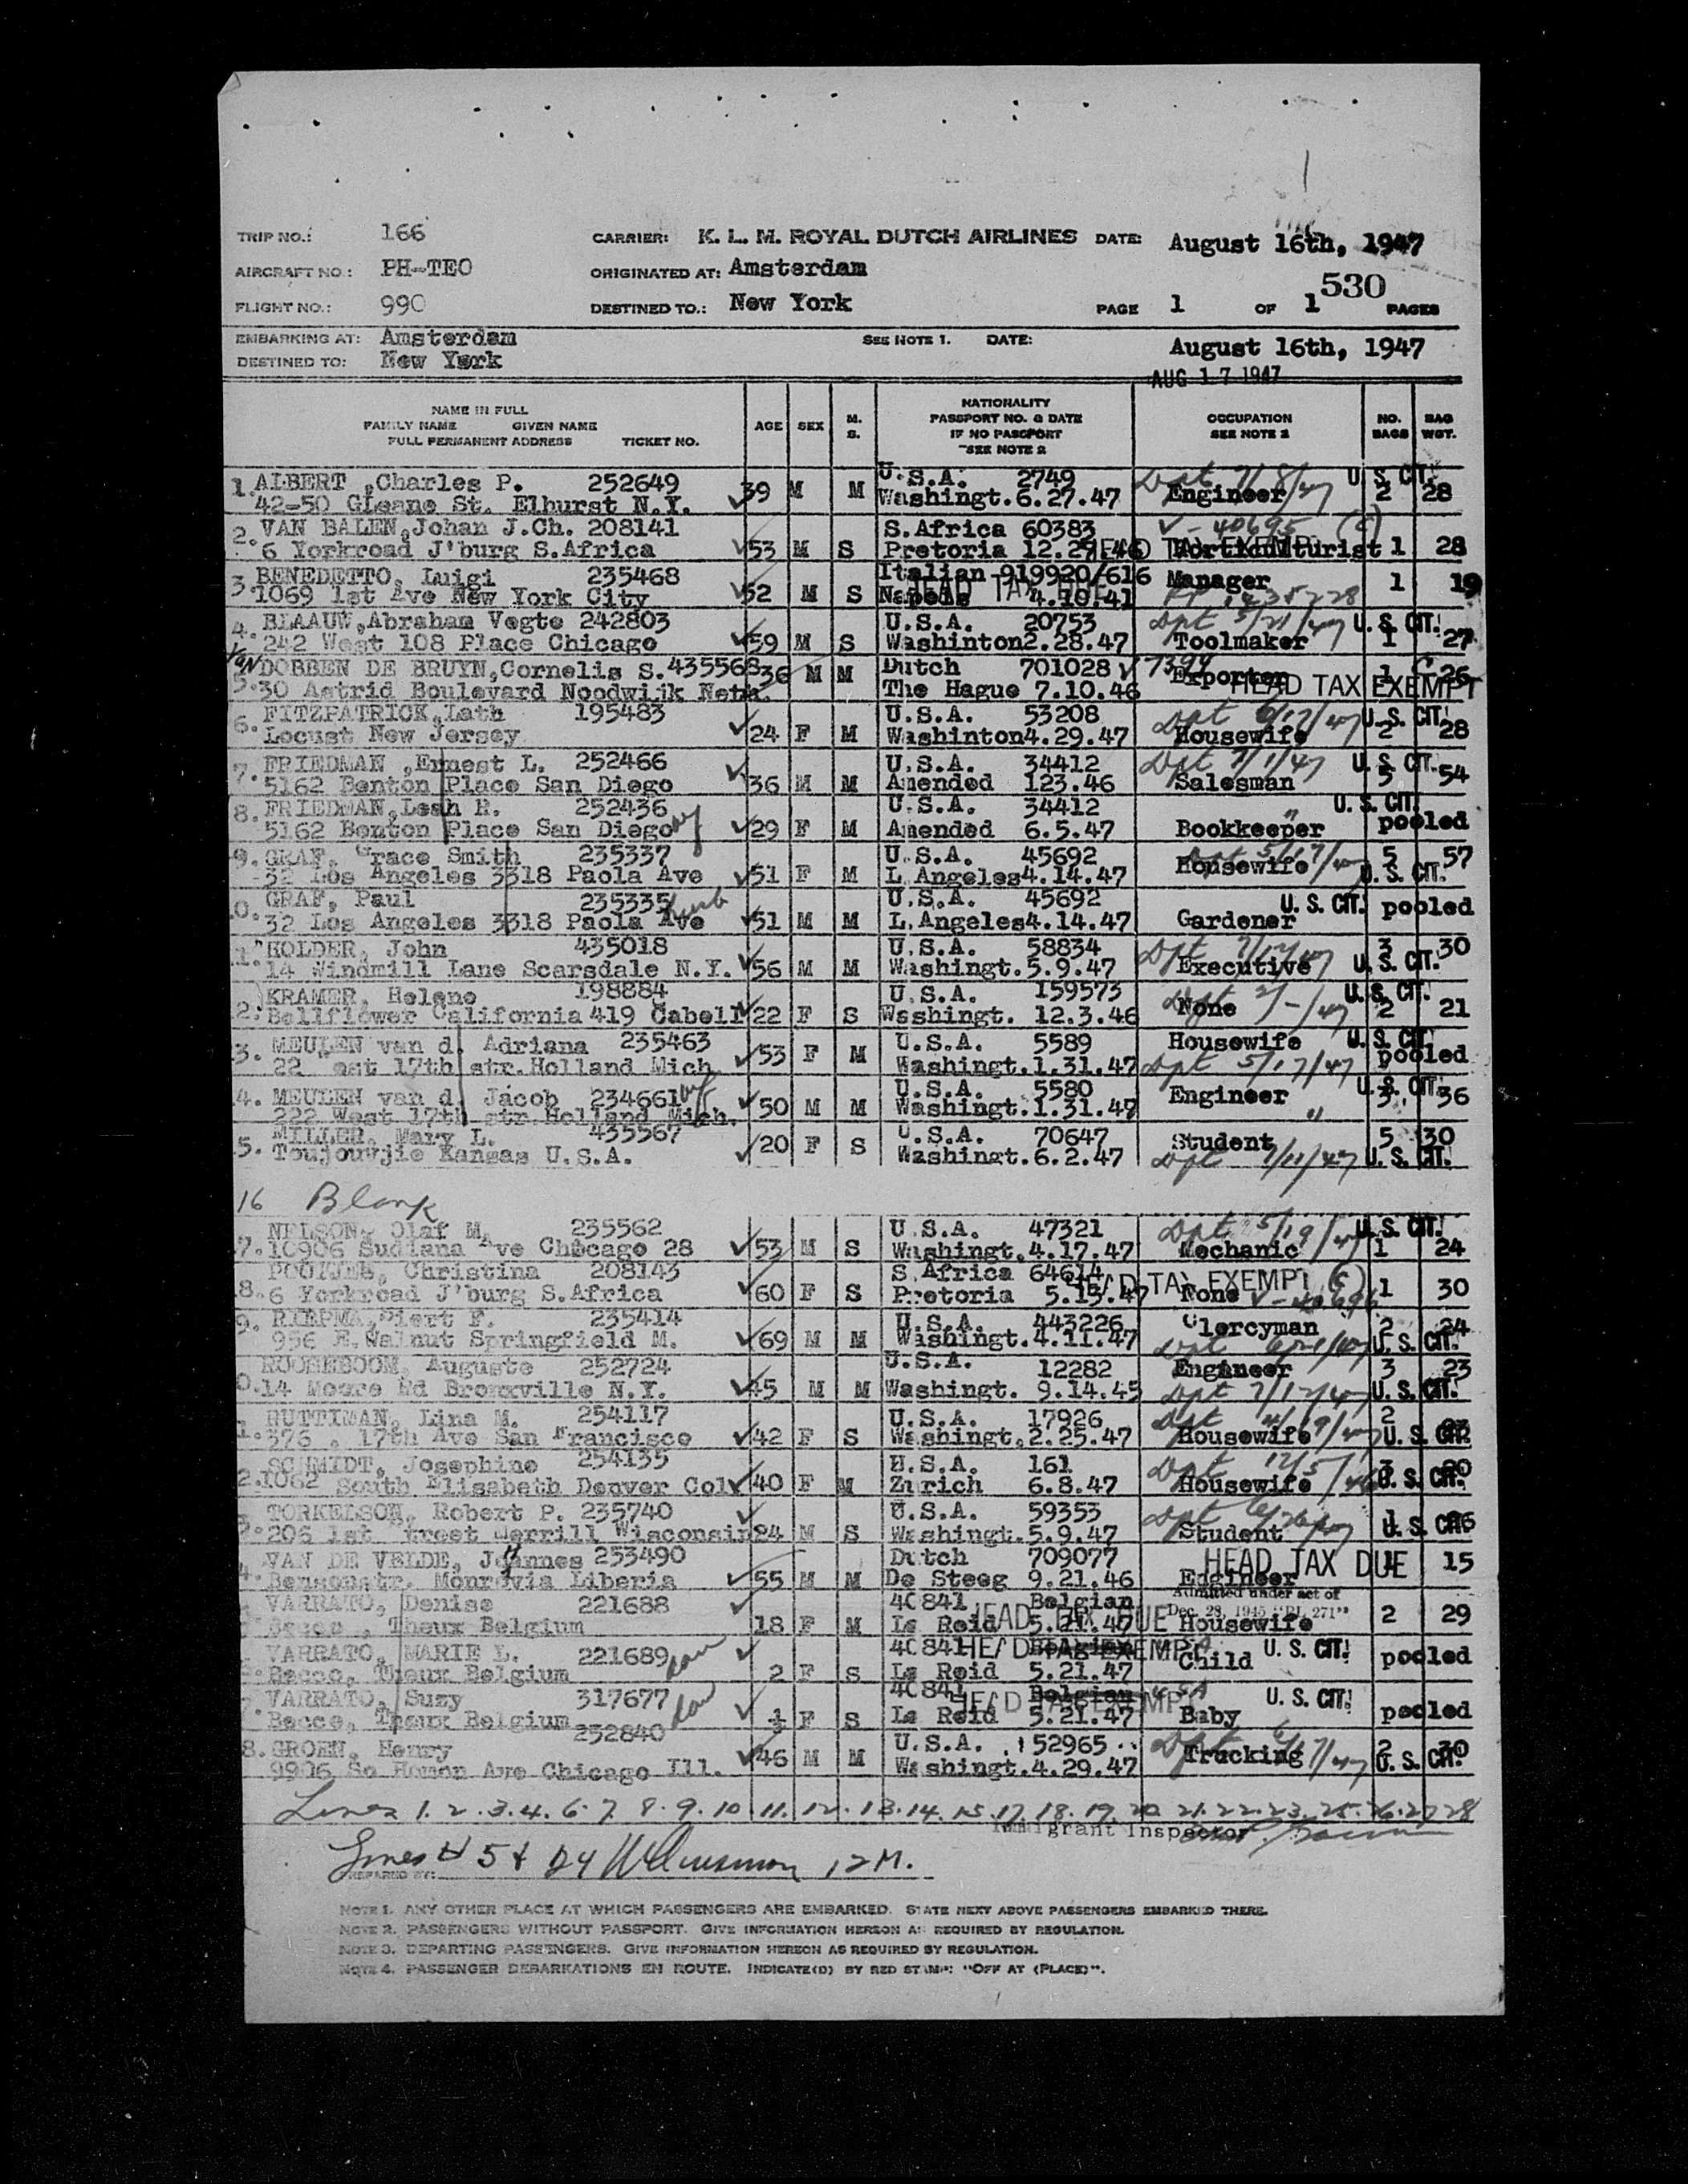 TRIP NO.: 166 CARRIER: K. L. M. ROYAL DUTCH AIRLINES DATE: August 16th, 1947
AIRCRAFT NO.: PH-TEO ORIGINATED AT: Amsterdam
530
FLIGHT NO.: 990 DESTINED TO.: New York PAGE 1 OF 1 PAGES
EMBARKING AT: Amsterdam SEE NOTE 1. DATE: August 16th, 1947
DESTINED TO: New York
AUG 17 1947
NAME IN FULL
FAMILY NAME GIVEN NAME
FULL PERMANENT ADDRESS TICKET NO.
AGE SEX M. S.
NATIONALITY
PASSPORT NO. & DATE
IF NO PASSPORT
SEE NOTE 2
OCCUPATION
SEE NOTE 2
NO. BAGS BAG WGT.
1. ALBERT ,Charles P. 252649 U.S.A. 2749 Dpt 7/8/47 U. S. CIT.
42-50 Gleane St. Elhurst N.Y. 39 M M Washingt. 6.27.47 Engineer 2 28
2. VAN BALEN,Johan J.Ch. 208141 S.Africa 60383 V-40695 (c)
6 Yorkroad J'burg S.Africa 53 M S Pretoria 12.27.46 HEAD TAX EXEMPT Horticulturist 1 28
3. BENEDETTO, Luigi 235468 Italian 919920/616 Manager 1 19
1069 1st Ave New York City 52 M S HEAD TAX 4.10.41
4. BLAAUW,Abraham Vegte 242803 U.S.A. 20753 Dpt 5/21/47 U. S. CIT.
242 West 108 Place Chicago 59 M S Washinton2.28.47 Toolmaker 1 27
Van DOBBEN DE BRUYN,Cornelis S.435568 36 M M Dutch 701028 V 7394 Exporter 1 26
5. 30 Astrid Boulevard Noodwijk Neth. The Hague 7.10.46 HEAD TAX EXEMPT
6. FITZPATRICK,Lath 195483 U.S.A. 53208 Dpt 6/17/47 U. S. CIT.
Locust New Jersey 24 F M Washinton4.29.47 Housewife 2 28
7. FRIEDMAN ,Ernest L. 252466 U.S.A. 34412 Dpt 7/1/47 U. S. CIT.
5162 Benton Place San Diego 36 M M Amended 123.46 Salesman 5 54
8. FRIEDMAN,Leah R. 252436 U.S.A. 34412 " U. S. CIT.
5162 Benton Place San Diego wf 29 F M Amended 6.5.47 Bookkeeper pooled
9. GRAF, Grace Smith 235337 U.S.A. 45692 Dpt 5/17/47 5 57
32 Los Angeles 3318 Paola Ave 51 F M L Angeles4.14.47 Housewife U. S. CIT.
0. GRAF, Paul 235335 husb U.S.A. 45692 U. S. CIT. pooled
32 Los Angeles 3318 Paola Ave 51 M M L.Angeles4.14.47 Gardener
1. HOLDER, John 435018 U.S.A. 58834 Dpt 7/12/47 3 30
14 Windmill Lane Scarsdale N.Y. 56 M M Washingt.5.9.47 Executive U. S. CIT.
2. KRAMER, Helene 198884 U.S.A. 159573 Dpt 2/-/47 U. S. CIT.
Bellflower California 419 Cabell 22 F S Washingt. 12.3.46 None 2 21
3. MEULEN van d. Adriana 235463 U.S.A. 5589 Housewife U. S. CIT.
22 17th str.Holland Mich 53 F M Washingt.1.31.47 Dpt 5/17/47 pooled
4. MEULEN van d. Jacob 234661 wf U.S.A. 5580 Engineer U. S. CIT.
222 West 17th str.Holland Mich. 50 M M Washingt.1.31.47 " 3 36
5. MILLER, Mary L. 435567 U.S.A. 70647 Student 5 30
Toujouvjie Kansas U.S.A. 20 F S Washingt.6.2.47 Dpt 7/11/47 U. S. CIT.
16 Blank
7. NELSON, Olaf M. 235562 U.S.A. 47321 Dpt 5/19/47 U. S. CIT.
10906 Sudiana Ave Chicago 28 53 M S Washingt.4.17.47 Mechanic 1 24
8. Christina 208143 S.Africa 64614 HEAD TAX EXEMPT (c)
6 Yorkroad J'burg S.Africa 60 F S Pretoria 5.13.47 None V-40696 1 30
9. RIEPMA, Siert F. 235414 U.S.A. 443226 Clercyman 2 24
956 E.Walnut Springfield M. 69 M M Washingt.4.11.47 Dpt U. S. CIT.
ROOSEBOOM, Auguste 252724 U.S.A. 12282 Engineer 3 23
0. 14 Moure Rd Bronxville N.Y. 45 M M Washingt. 9.14.45 Dpt 7/12/47 U. S. CIT.
1. RUTTIMAN, Lina M. 254117 U.S.A. 17926 Dpt 2
376 , 17th Ave San Francisco 42 F S Washingt.2.25.47 Housewife U. S. CIT.
2. SCHMIDT, Josephine 254135 U.S.A. 161 Dpt 12/5/46
1062 South Elisabeth Denver Col 40 F M Zurich 6.8.47 Housewife U. S. CIT.
3. TORKELSON, Robert P. 235740 U.S.A. 59353 Dpt
206 1st Street Merrill Wisconsin 24 M S Washingt.5.9.47 Student U. S. CIT.
4. VAN DE VELDE, Johannes 253490 Dutch 709077 HEAD TAX DUE 1 15
Bensonstr. Monrovia Liberia 55 M M De Steeg 9.21.46 Engineer
Admitted under act of
VARRATO, Denise 221688 40841 Belgian Dec. 28, 1945 "PL 271"
Becco , Theux Belgium 18 F M La Reid 5.21.47 HEAD TAX DUE Housewife 2 29
VARRATO, MARIE L. 221689 dau 40841 HEAD TAX EXEMPT U. S. CIT. pooled
Becco, Theux Belgium 2 F S La Reid 5.21.47 Child
VARRATO, Suzy 317677 dau 40841 Belgian USA HEAD TAX EXEMPT U. S. CIT. pooled
Becco, Theux Belgium F S La Reid 5.21.47 Baby
252840
8. GROEN, Henry U.S.A. 152965 Dpt 6/17/47 2 30
9906 So Homon Ave Chicago Ill. 46 M M Washingt.4.29.47 Trucking U. S. CIT.
Lines 1. 2. 3. 4. 6. 7. 8. 9. 10. 11. 12. 13. 14. 15. 17. 18. 19. 20. 21. 22. 23. 25. 26. 27. 28
Immigrant Inspector
Lines # 5 & 24 12 M.
PREPARED BY:
NOTE 1. ANY OTHER PLACE AT WHICH PASSENGERS ARE EMBARKED. STATE NEXT ABOVE PASSENGERS EMBARKED THERE.
NOTE 2. PASSENGERS WITHOUT PASSPORT. GIVE INFORMATION HEREON AS REQUIRED BY REGULATION.
NOTE 3. DEPARTING PASSENGERS. GIVE INFORMATION HEREON AS REQUIRED BY REGULATION.
NOTE 4. PASSENGER DEBARKATIONS EN ROUTE. INDICATE(D) BY RED STAMP: "OFF AT (PLACE)".